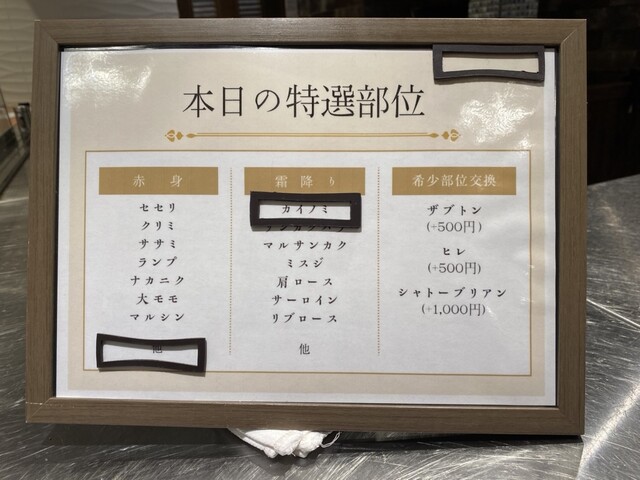 本日の特選部位
赤身
セセリ
クリミ
ササミ
ランプ
ナカニク
大モモ
マルシン
他
霜降り
カイノミ
マルサンカク
ミスジ
肩ロース
サーロイン
リブロース
他
希少部位交換
ザブトン
(+500円)
ヒレ
(+500円)
シャトーブリアン
(+1,000円)